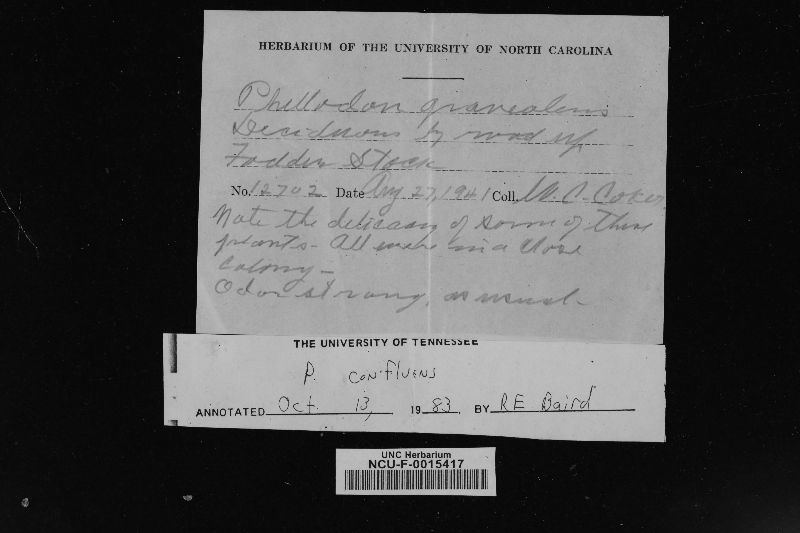 HERBARIUM OF THE UNIVERSITY OF NORTH CAROLINA
Phellodon graveolens
Deciduous by road up
Fodder Stack
No. 12702 Date Aug 27, 1941 Coll. W. C. Coker
Note the delicacy of some of these
plants - All were in a close
colony -
Odor strong, as usual -
THE UNIVERSITY OF TENNESSEE
P. confluens
ANNOTATED Oct 13, 1983 BY RE Baird
UNC Herbarium
NCU-F-0015417